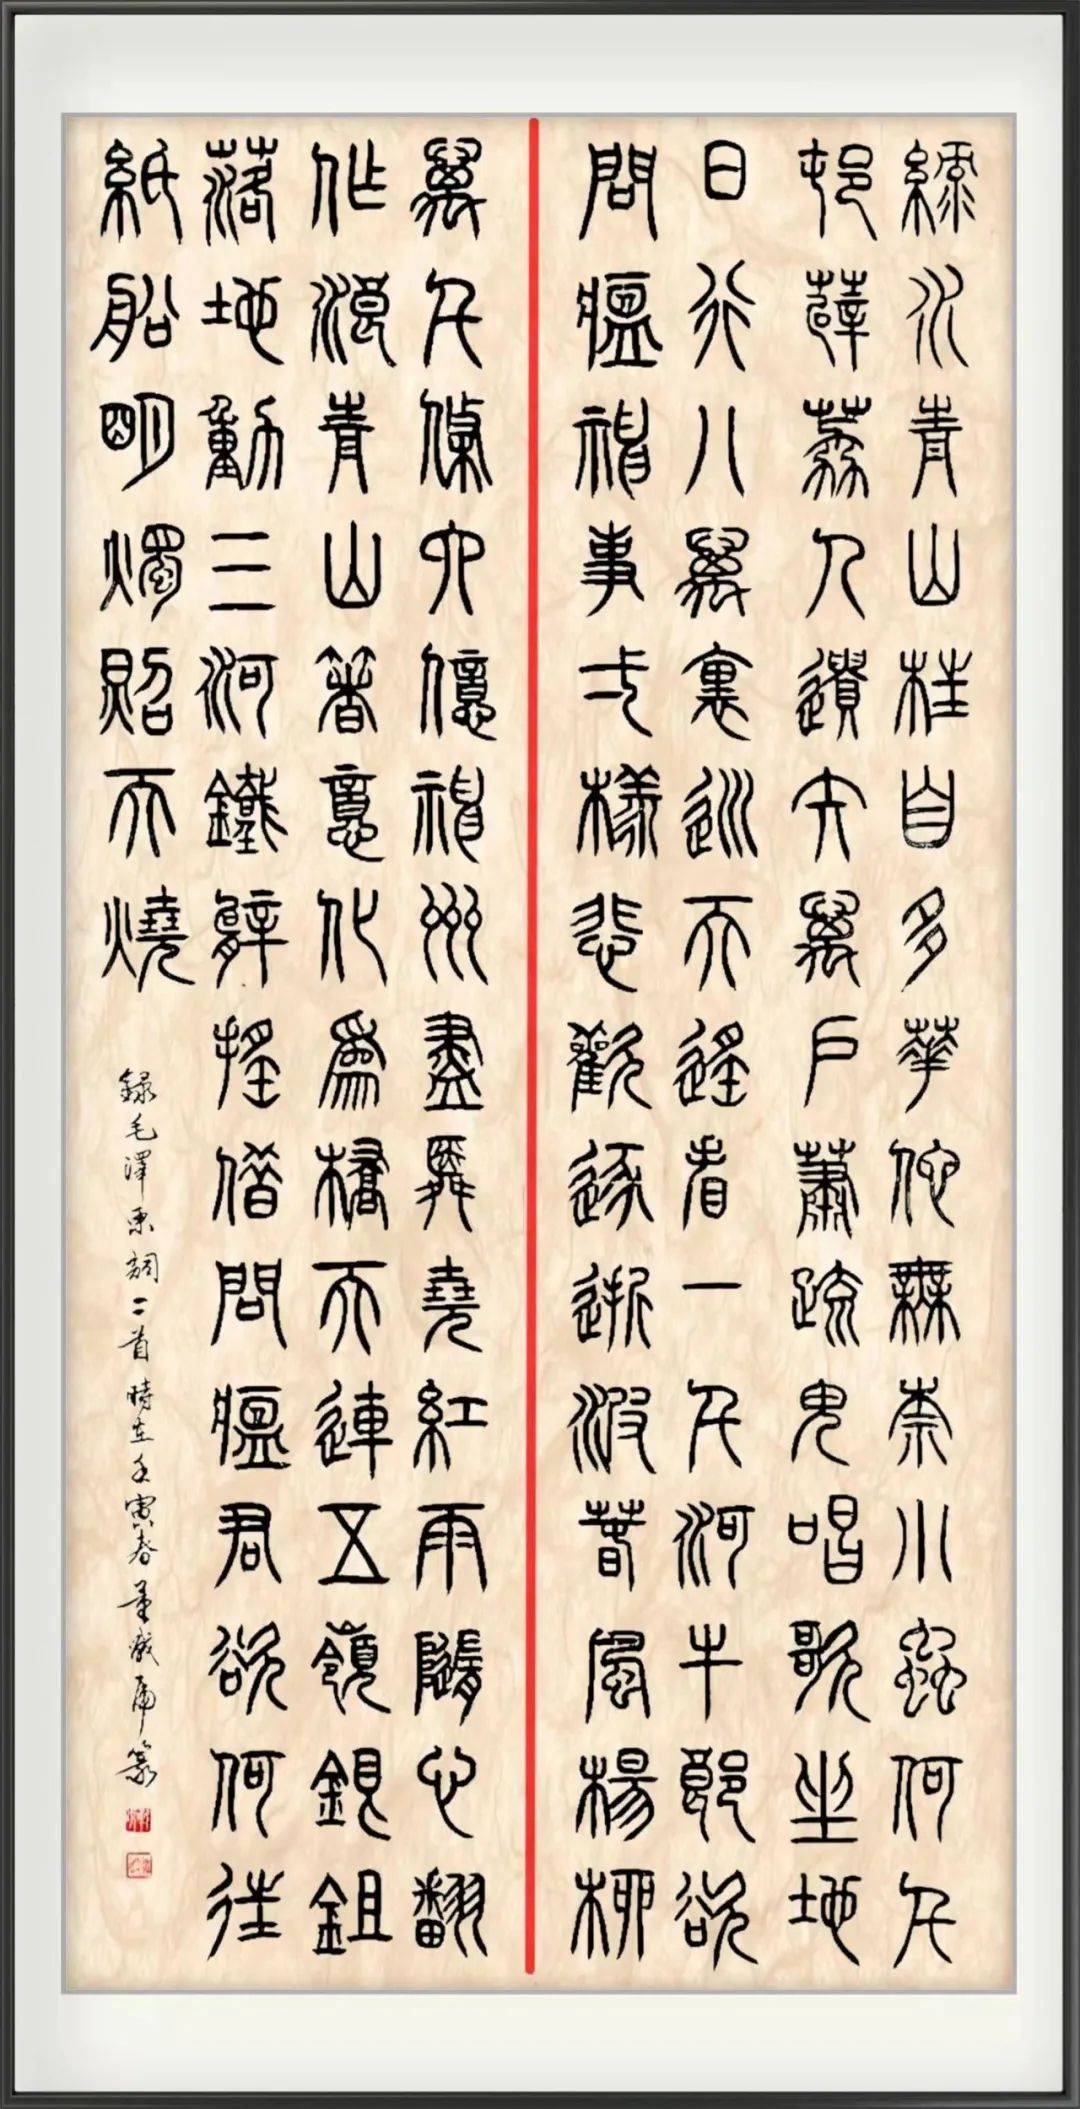 綠水青山枉自多華佗無奈小蟲何千
村薜荔人遺矢萬戶蕭疏鬼唱歌坐地
日行八萬裏巡天遙看一千河牛郎欲
問瘟神事弌樣悲歡逐逝波春風楊柳
萬千條六億神州盡舜堯紅雨隨心翻
作浪青山著意化為橋天連五嶺銀鉏
落地動三河鐵臂搖借問瘟君欲何往
紙船明燭照天燒
錄毛澤東詞二首時在壬寅春董虎篆